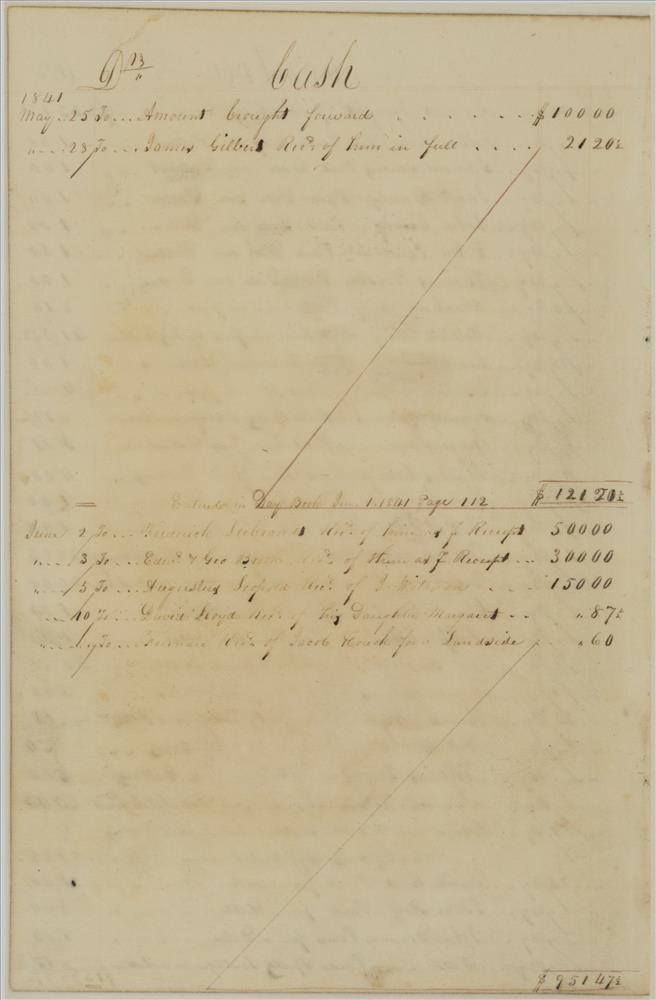 Dr Cash
1841
May .. 25 To ... Amount brought forward . . . . . . . $ 100 00
" ... 28 To ... James Gilbert Rec'd of him in full . . . . 21 20½
= Entered in Day Book June 1. 1841 Page 112 $ 121 20½
June 2 To ... Frederick Rec'd of him as Receipt 500 00
" .. 3 To ... Edw'd & Geo Rec'd of them as Receipt .. 300 00
" .. 5 To ... Augustus Leopold Rec'd of J. . . . 150 00
" ... 10 To ... David Lloyd Rec'd of his Daughter Margaret . . " 87½
" ... " To ... Rec'd of Jacob Houck for a Landside . " 60
$ 951 47½